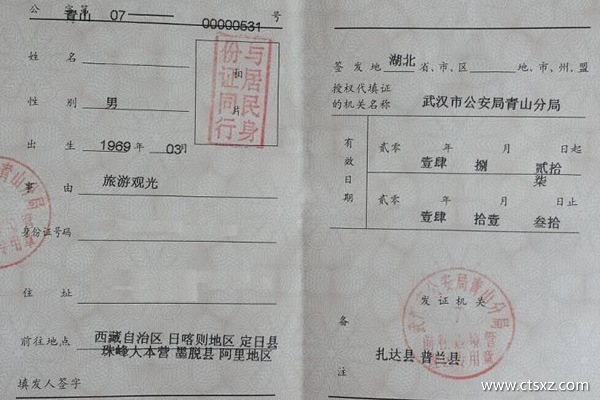 公 字第
青山 07 00000531 号
姓 名
性 别 男
出 生 1969 年 03月
事 由 旅游观光
身份证号码
住 址
前往地点 西藏自治区 日喀则地区 定日县
珠峰大本营 墨脱县 阿里地区
填发人签字
相
片
与居民身
份证同行
青山分局
签 发 地 湖北 省、市、区 地、市、州、盟
授权代填证
的机关名称 武汉市公安局青山分局
有效日期
贰零 年 月 日起
壹肆 捌 贰拾
柒
贰零 年 月 日止
壹肆 拾壹 叁拾
武汉市公安局青山分局
发 证 机 关
备
注
扎达县 普兰县
www.ctsxz.com